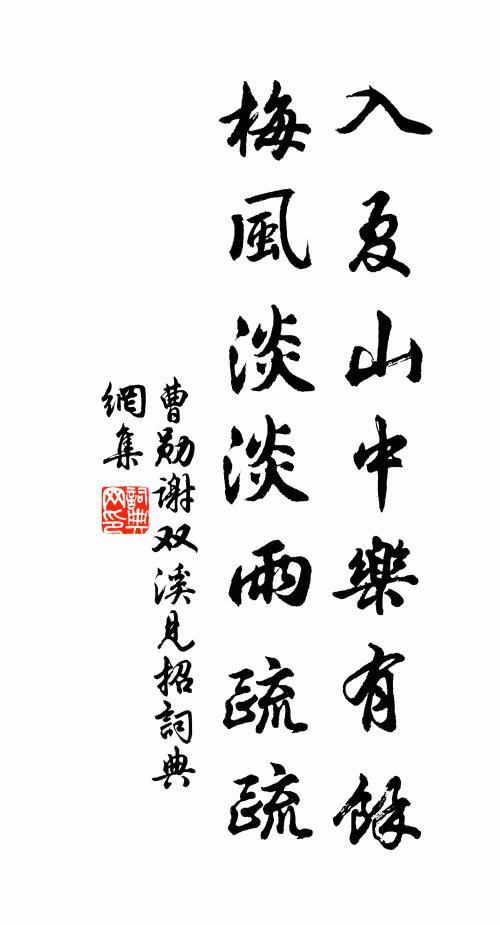 入夏山中樂有餘
梅風淡淡雨疏疏
曹勋谢双溪見招詞典
網集
詞典
网印